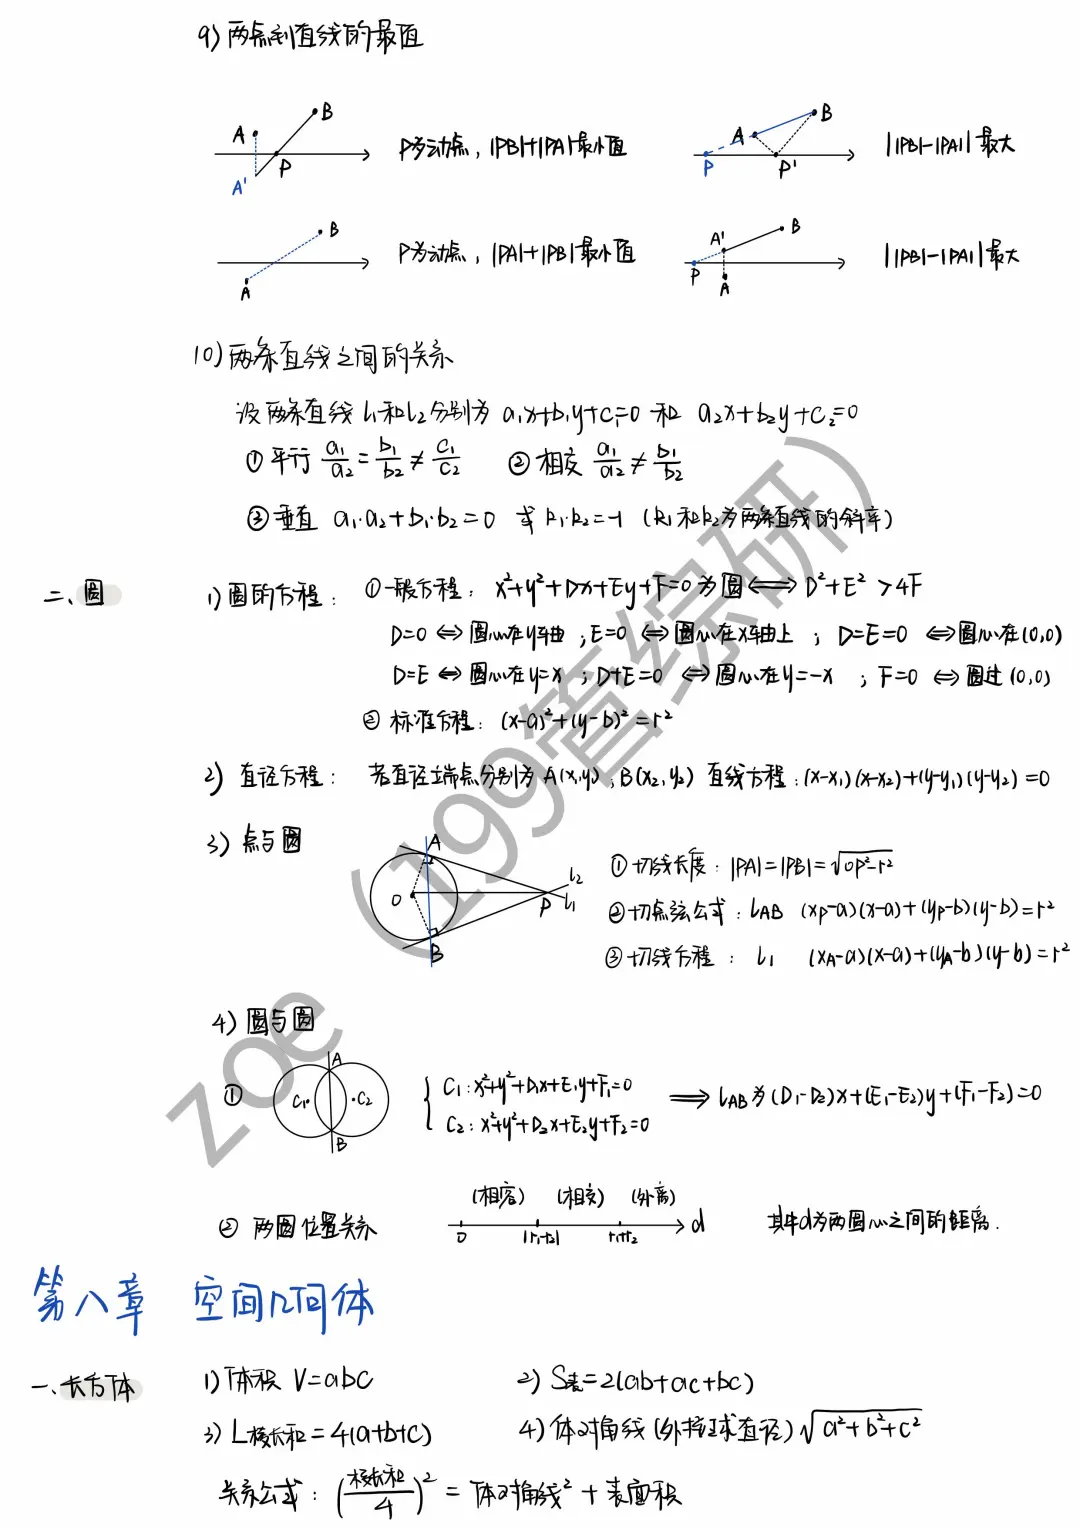 9) 两点到直线的最值
A B P A' P为动点，|PB|+|PA|最小值 A B P P' ||PB|-|PA||最大
B A P为动点，|PA|+|PB|最小值 A' B P A ||PB|-|PA||最大
10) 两条直线之间的关系
设两条直线 l₁和l₂分别为 a₁x+b₁y+c₁=0 和 a₂x+b₂y+c₂=0
① 平行 a₁/a₂=b₁/b₂≠c₁/c₂ ② 相交 a₁/a₂≠b₁/b₂
③ 垂直 a₁·a₂+b₁·b₂=0 或 k₁·k₂=-1 (k₁和k₂为两条直线的斜率)
二、圆 1) 圆的方程： ①一般方程：x²+y²+Dx+Ey+F=0 为圆⟺D²+E²>4F
D=0⇔圆心在y轴；E=0⇔圆心在x轴上；D=E=0⇔圆心在(0,0)
D=E⇔圆心在y=x；D+E=0⇔圆心在y=-x；F=0⇔圆过(0,0)
② 标准方程：(x-a)²+(y-b)²=r²
2) 直径方程： 若直径端点分别为A(x,y)；B(x₂,y₂) 直线方程：(x-x₁)(x-x₂)+(y-y₁)(y-y₂)=0
3) 点与圆
A O B P l₂ l₁
①切线长度：|PA|=|PB|=√OP²-r²
②切点弦公式：lAB (xP-a)(x-a)+(yP-b)(y-b)=r²
③切线方程：l₁ (xA-a)(x-a)+(yA-b)(y-b)=r²
4) 圆与圆
① A C₁ C₂ B { C₁:x²+y²+D₁x+E₁y+F₁=0
C₂:x²+y²+D₂x+E₂y+F₂=0 ⟹ lAB为(D₁-D₂)x+(E₁-E₂)y+(F₁-F₂)=0
(相容) (相交) (外离)
② 两圆位置关系 0 |r₁-r₂| r₁+r₂ d 其中d为两圆心之间的距离.
第八章 空间几何体
一、长方体 1) 体积 V=abc 2) S表=2(ab+ac+bc)
3) L棱长和=4(a+b+c) 4) 体对角线(外接球直径)√a²+b²+c²
关系公式：(棱长和/4)²=体对角线²+表面积
zoe（199管综研）